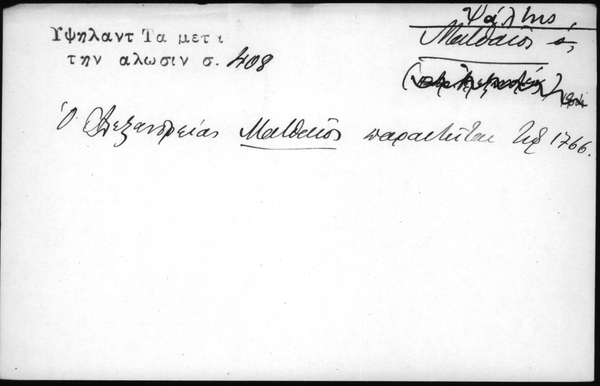 Ψάλτης,
Ματθαίος ὁ,
Υψηλαντ Τα μετ
την αλωσιν σ. 408
Ὁ Ἀλεξανδρείας Ματθαῖος παραιτεῖται τῷ 1766.